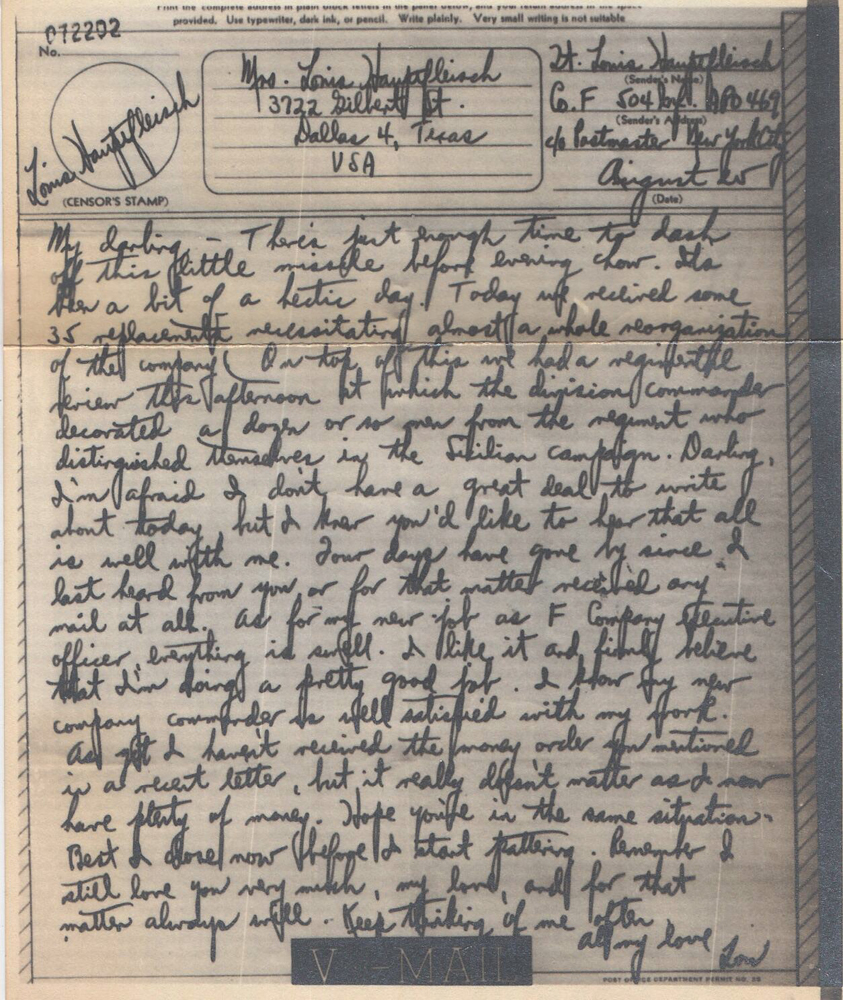 Print the complete address in plain block letters in the panel below, and your return address in the space
provided. Use typewriter, dark ink, or pencil. Write plainly. Very small writing is not suitable
072202
No.
Louis Hauptfleisch
(CENSOR'S STAMP)
Mrs. Louis Hauptfleisch
3722 Gilbert St.
Dallas 4, Texas
USA
Lt. Louis Hauptfleisch
(Sender's Name)
Co. F 504 Inf. APO 469
(Sender's Address)
c/o Postmaster New York City
August 25
(Date)
My darling, - There's just enough time to dash
off this little missile before evening chow. Its
been a bit of a hectic day. Today we received some
35 replacements necessitating almost a whole reorganization
of the company! On top of this we had a regimental
review this afternoon at which the division commander
decorated a dozen or so men from the regiment who
distinguished themselves in the Sicilian campaign. Darling,
I'm afraid I don't have a great deal to write
about today, but I knew you'd like to hear that all
is well with me. Four days have gone by since I
last heard from you or for that matter received any
mail at all. As for my new job as F Company executive
officer, everything is swell. I like it and firmly believe
that I'm doing a pretty good job. I know my new
company commander is well satisfied with my work.
As yet I haven't received the money order you mentioned
in a recent letter, but it really doesn't matter as I now
have plenty of money. Hope you're in the same situation.
Best I close now before I start pattering. Remember I
still love you very much, my love, and for that
matter always will. Keep thinking of me often
All my love Lou
V-MAIL
POST OFFICE DEPARTMENT PERMIT NO.